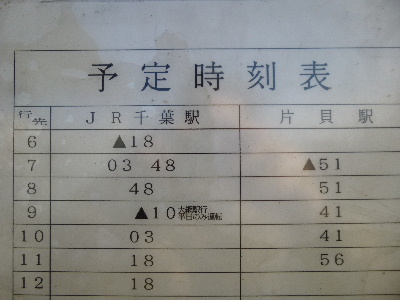 予定時刻表
行先 JR千葉駅 片貝駅
6 ▲18
7 03 48 ▲51
8 48 51
9 ▲10 大網駅行 平日のみ運転 41
10 03 41
11 18 56
12 18